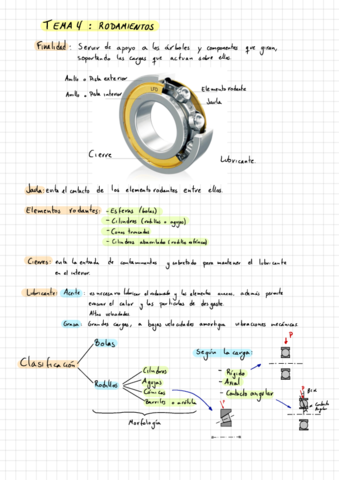 TEMA 4: RODAMIENTOS
Finalidad: Servir de apoyo a los árboles y componentes que giran,
soportando las cargas que actúan sobre ellos.
Anillo o Pista exterior
Anillo o Pista interior
Elemento rodante
Jaula
Cierre
Lubricante.
Jaula: evita el contacto de los elementos rodantes entre ellos
Elementos rodantes:
- Esferas (bolas)
- Cilindros (rodillos o agujas)
- Conos truncados
- Cilindros abarrilados (rodillos esféricos)
Cierres: evita la entrada de contaminantes y sobretodo para mantener el lubricante
en el interior.
Lubricante: Aceite: es necesario lubricar el rodamiento y los elementos anexos, además permite
evacuar el calor y las partículas de desgaste.
Altas velocidades
Grasa: Grandes cargas, a bajas velocidades amortigua vibraciones mecánicas
Clasificación
Bolas
Rodillos
Cilindros
Agujas
Cónicos
Barriles o rótula
Morfología
Según la carga:
- Rígido
- Axial
- Contacto angular
P